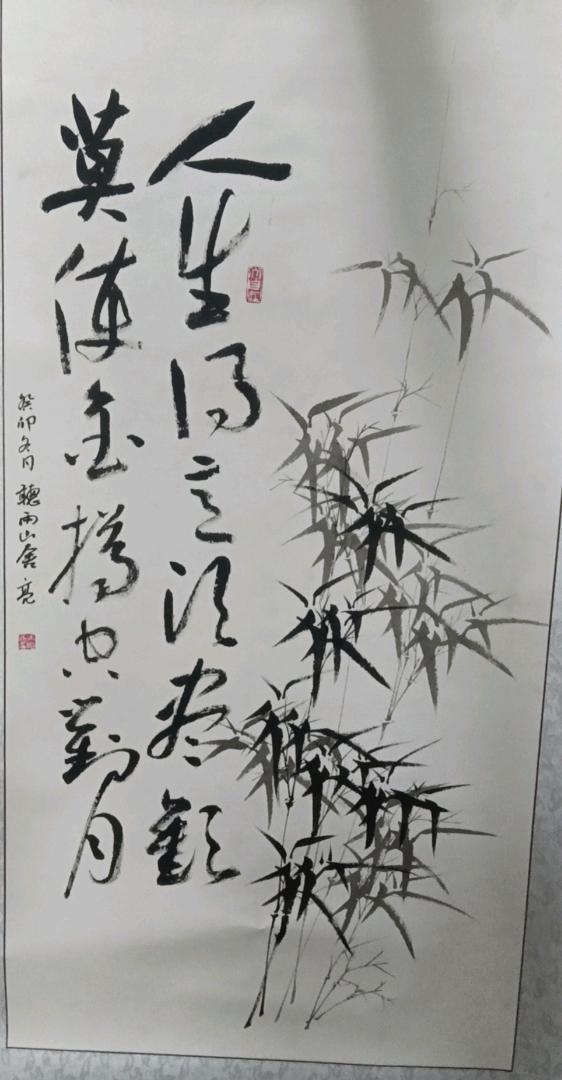 人生得意须尽歡
莫使金樽空對月
癸卯冬月 聽雨山舍 亮